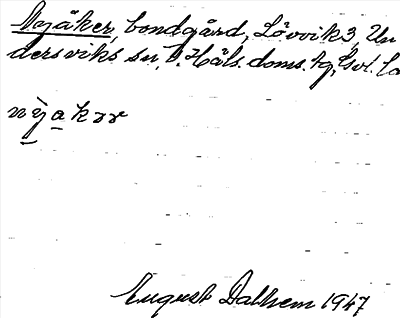 Nyåker, bondgård, Lövvik 3, Un
dersviks sn, V. Häls. doms. tg, Gvl. la
nỳakær
August Dalhem 1947